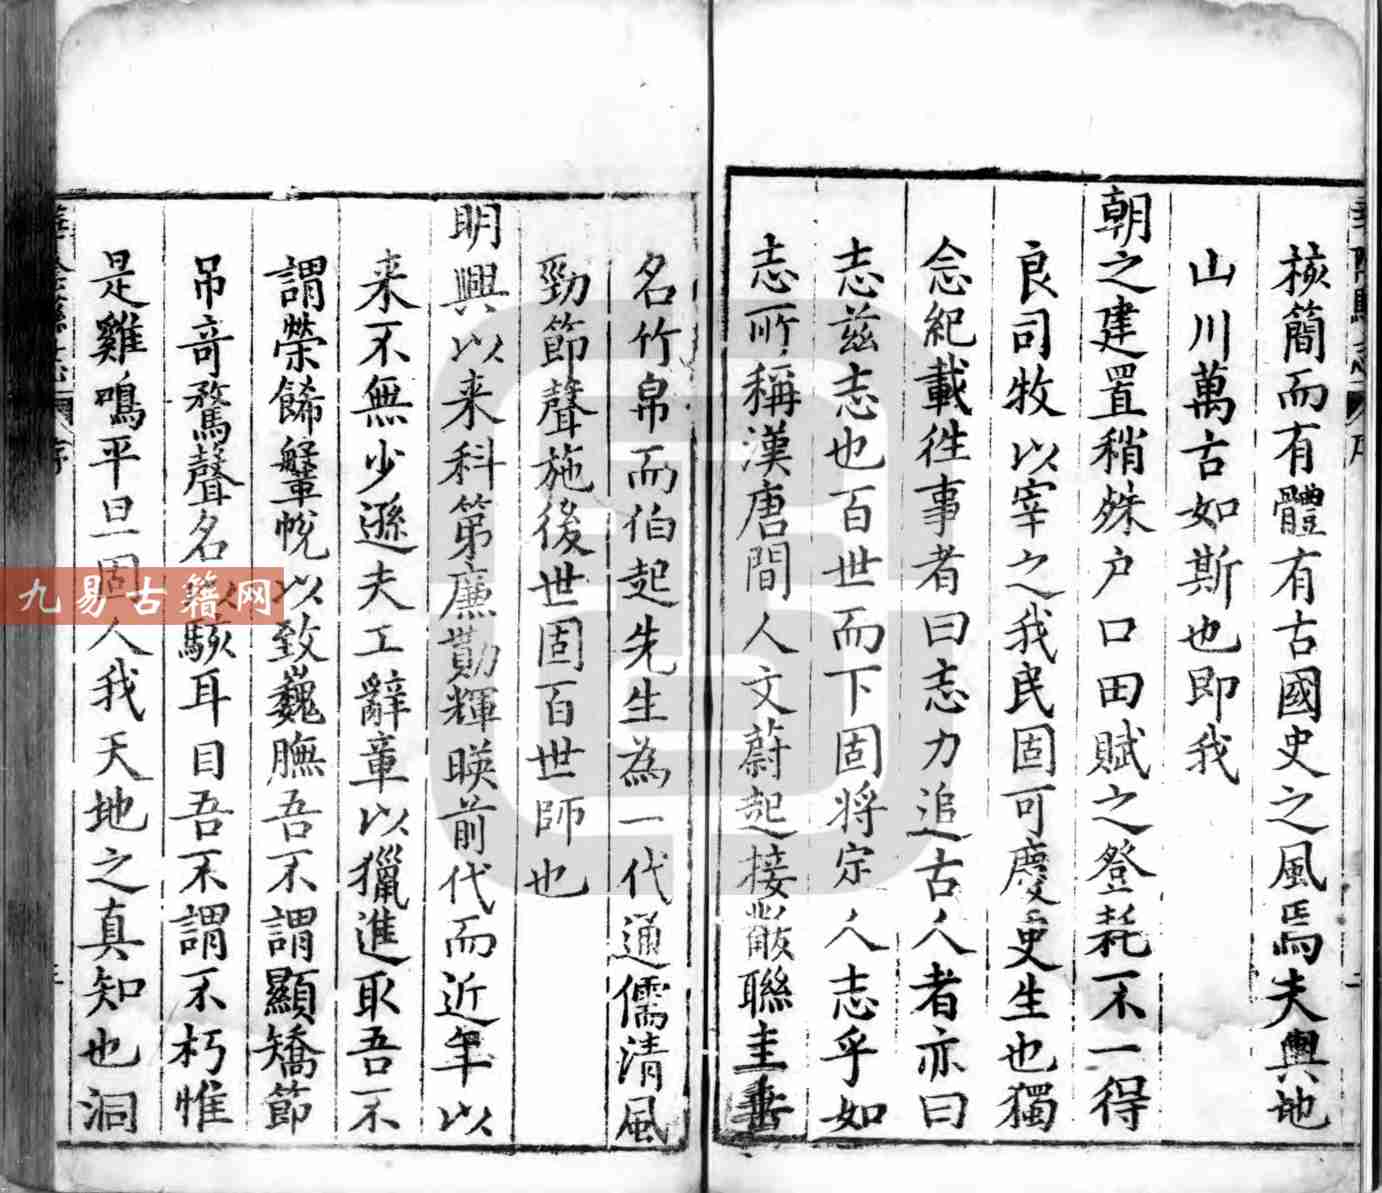 核簡而有體有古國史之風焉夫輿地
山川萬古如斯也即我
朝之建置稍殊户口田賦之登耗不一得
良司牧以宰之我民固可慶更生也獨
念紀載徃事者曰志力追古人者亦曰
志兹志也百世而下固將定人志乎如
志所稱漢唐間人文蔚起接武聯圭垂
名竹帛而伯起先生為一代通儒清風
勁節聲施後世固百世師也
明興以来科第廉勤輝暎前代而近年以
来不無少遜夫工辭章以獵進取吾不
謂榮餙鞶帨以致巍膴吾不謂顯矯節
吊竒騖聲名以駭耳目吾不謂不朽惟
是雞鳴平旦固人我天地之真知也洞
華陰縣志 序
九易古籍网